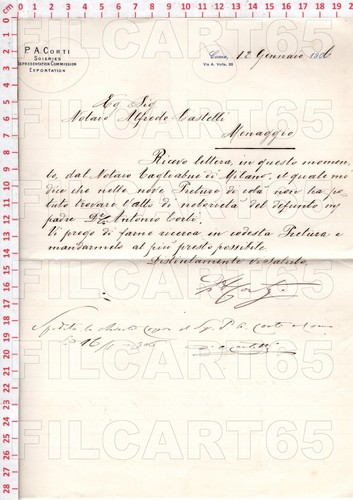 P. A. CORTI
SOIERIES
REPRESENTATION COMMISSION
EXPORTATION
Como, 12 Gennaio 1906
Via A. Volta, 33
Eg. Sig.
Notaio Alfredo Castelli
Menaggio
Ricevo lettera, in questo momen-
to, dal Notaio Tagliabue di Milano, il quale mi
dice che nelle nove Preture di colà non ha po-
tuto trovare l'atto di notorietà del defunto mio
padre Antonio Corti.
Vi prego di farne ricerca in codesta Pretura e
mandarmelo al più presto possibile.
Distintamente vi saluto.
Corti
Spedita la copia al Sig. P. A. Corti
16
FILCART65
FILCART65
FILCART65
FILCART65
FILCART65
FILCART65
cm
1 2 3 4 5 6 7 8 9 10 11 12 13 14 15 16 17 18 19 20 21 22 23 24 25 26 27 28